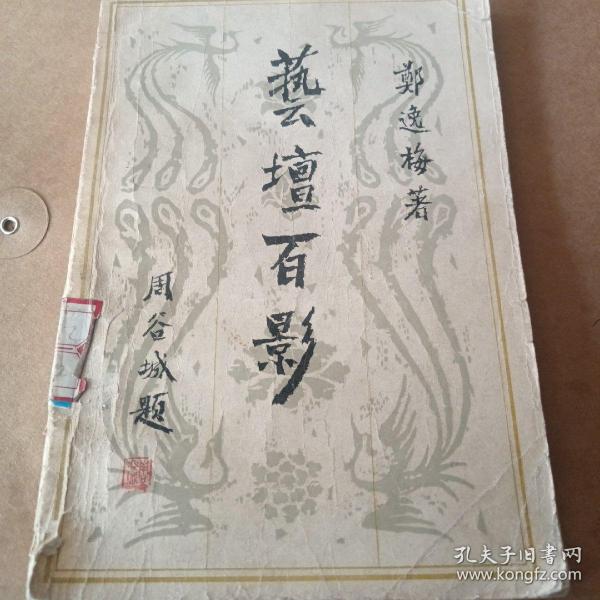 鄭逸梅著
藝壇百影
周谷城題
孔夫子旧書网
www.kongfz.com